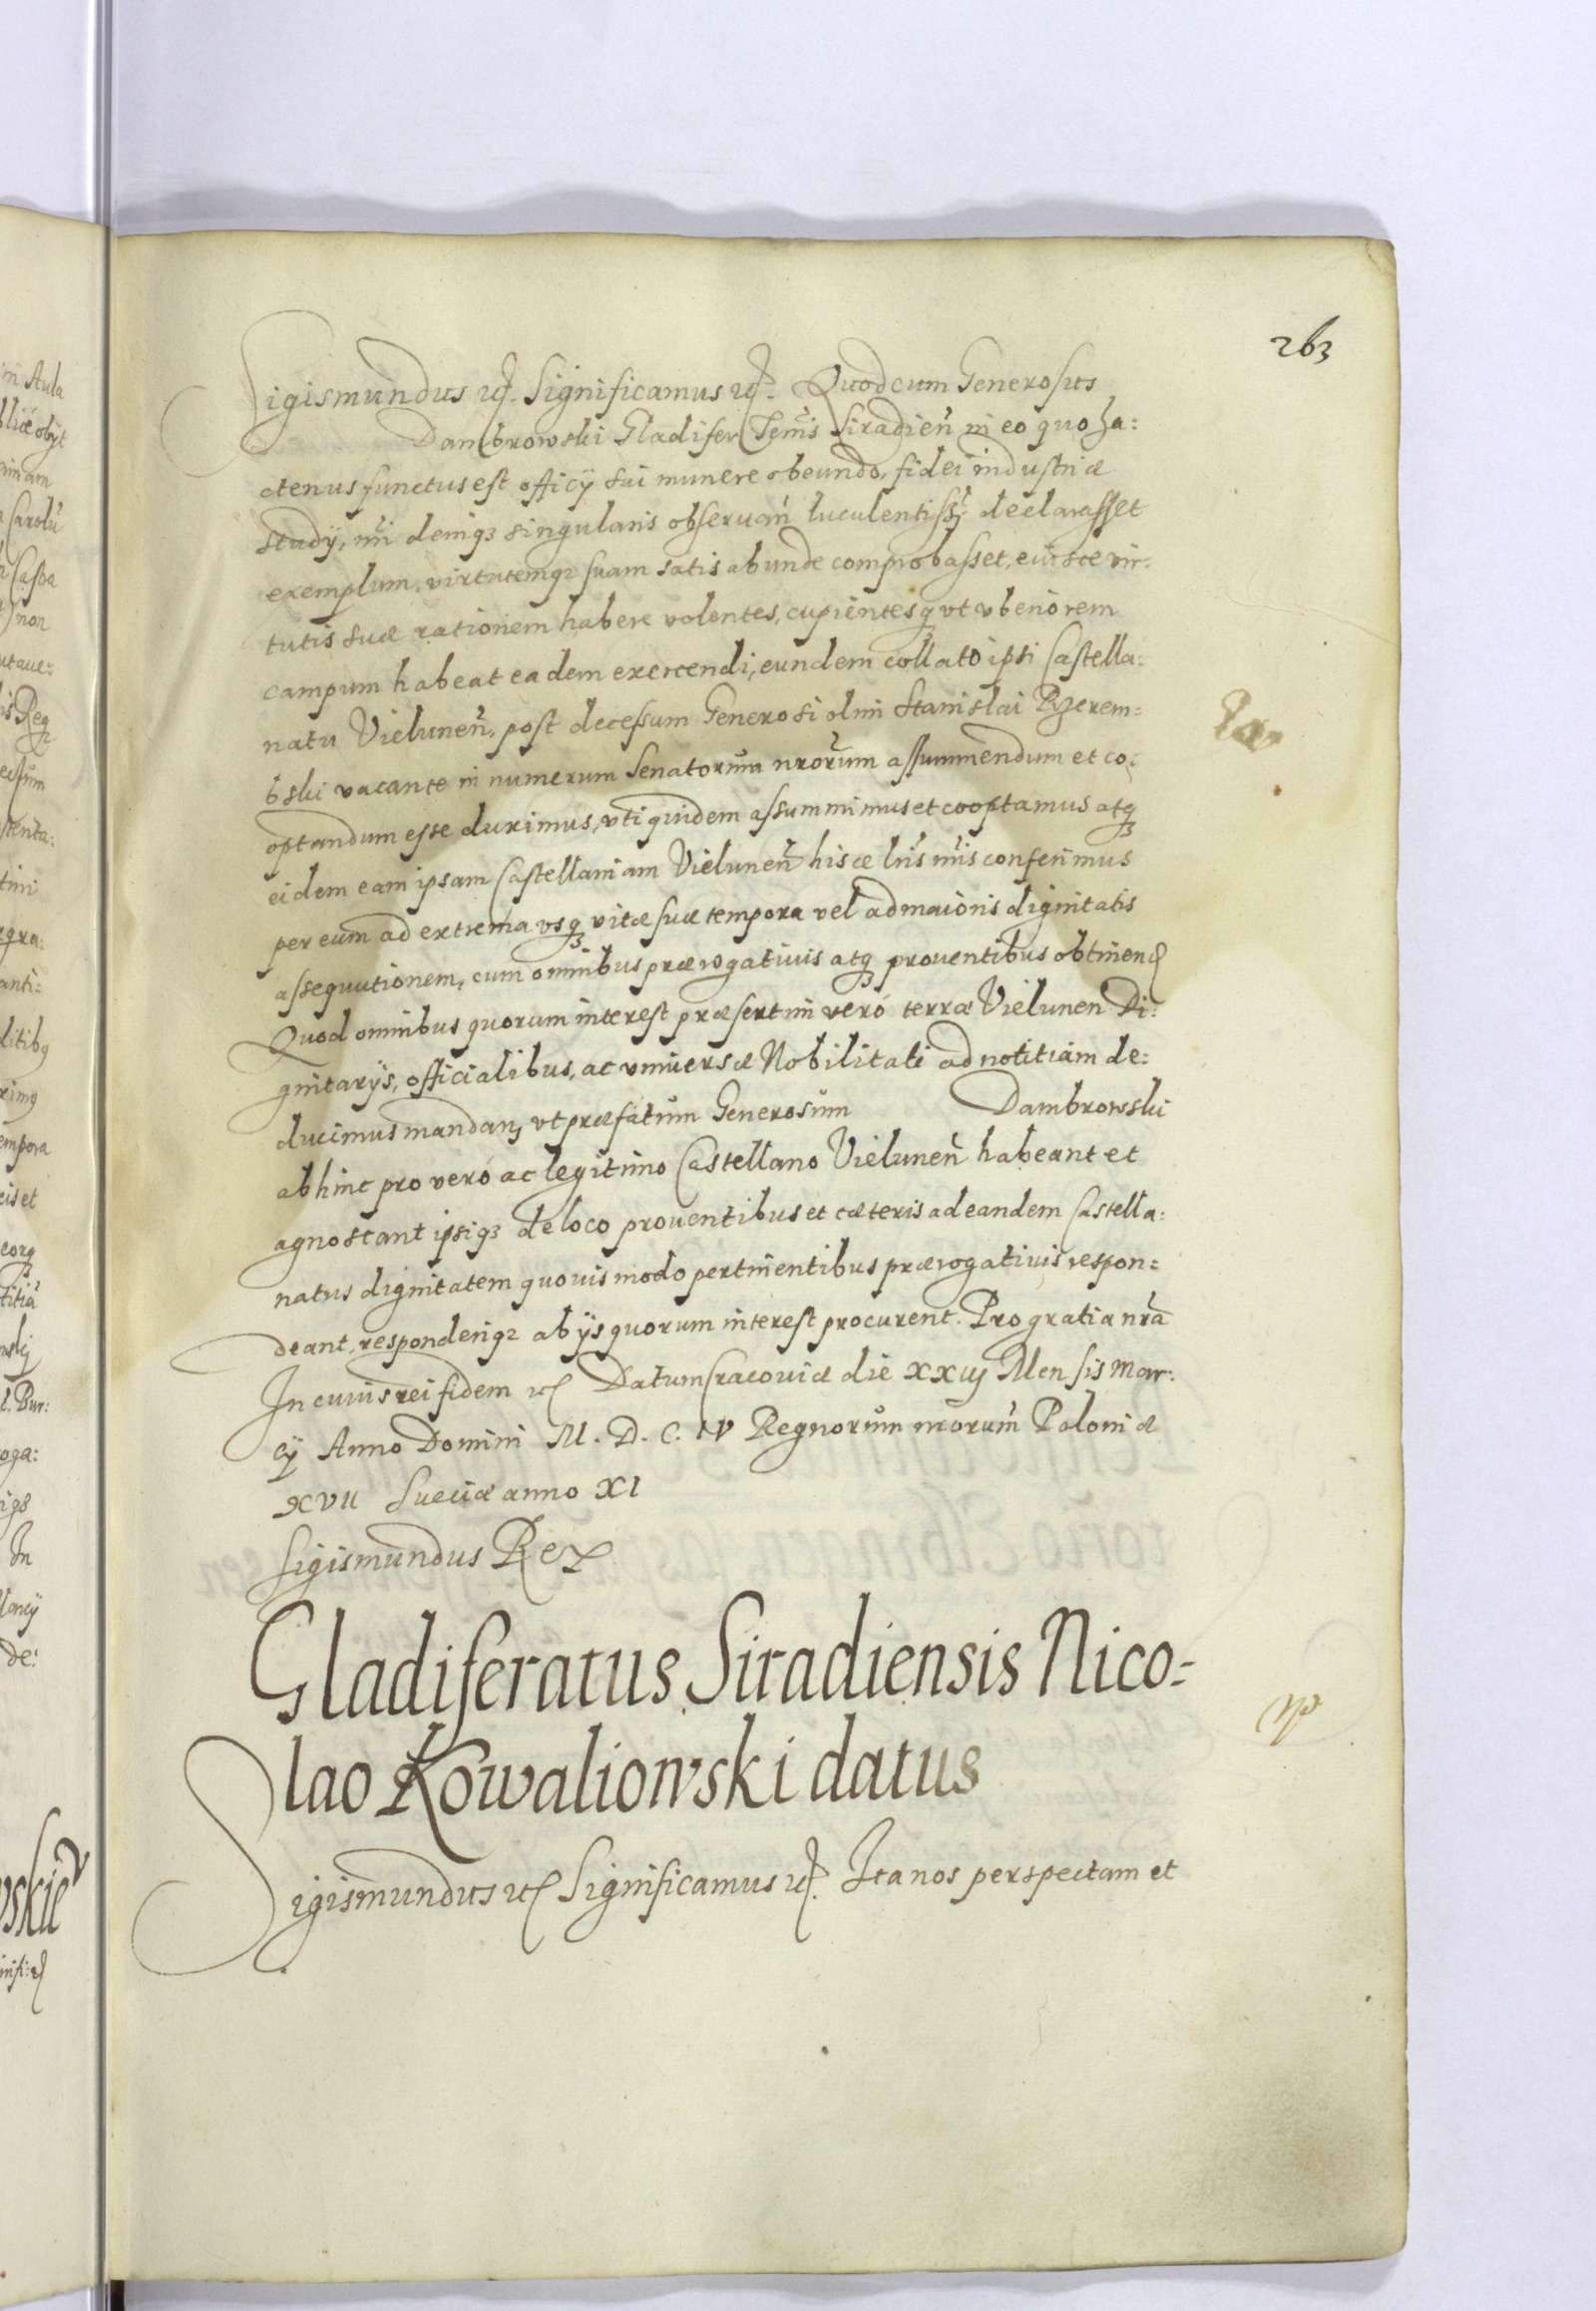 263
Sigismundus etc. Significamus etc. Quod cum Generosus
Dambrowski Gladifer Terrīs Siradień in eo quo ha:
ctenus functus est officÿ sui munere obeundo, fidei industriæ
studÿ, deniqȝ singularis obseruań luculentiss̄ declarasset
exemplum, virtutemqȝ suam satis abunde comprobasset, eiusce vir:
tutis suæ rationem habere volentes, cupientesqȝ vt vberiorem
campum habeat eadem exercendi, eundem collato ipsi Castella:
natu Vieluneń. post decessum Generosi olim Stanislai Rzerem:
bski vacante in numerum Senatorum nrorum assummendum et co:
optandum esse duximus, vti quidem assummimus et cooptamus atqȝ
eidem eam ipsam Castellaniam Vieluneń hisce lris nris conferimus
per eum ad extrema vsqȝ vitæ suæ tempora vel ad maioris dignitatis
assequutionem, cum omnibus prærogatiuis atqȝ prouentibus obtinend
Quod omnibus quorum interest præsertim veró terræ Vielunen Di:
gnitarÿs, officialibus, ac vniuersæ Nobilitati ad notitiam de:
ducimus mandanȝ vt præfatum Generosum Dambrowski
abhinc pro veró ac legitimo Castellano Vieluneń habeant et
agnoscant ipsiqȝ de loco prouentibus et cæteris ad eandem Castella:
natus dignitatem quouismodo pertinentibus prærogatiuis respon:
deant, responderiqȝ ab ÿs quorum interest procurent. Pro gratia nra
In cuius rei fidem etc Datum Cracouiæ die xxiij Mensis Mar:
cÿ Anno Domini M. D. C. IV Regnorum nrorum Poloniæ
XVII Sueciæ anno XI
Sigismundus Rex
Gladiferatus Siradiensis Nico-
lao Kowaliowski datus
Sigismundus etc Significamus etc. Ita nos perspectam et